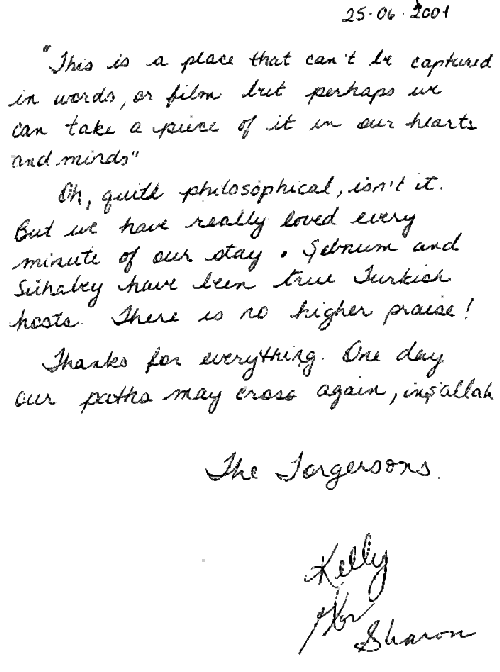 25-06-2001
"This is a place that can't be captured
in words, or film but perhaps we
can take a piece of it in our hearts
and minds"
Oh, quite philosophical, isn't it.
But we have really loved every
minute of our stay. Şebnum and
Süha bey have been true Turkish
hosts. There is no higher praise!
Thanks for everything. One day
our paths may cross again, inş'allah
The Torgersons.
Kelly
Sharon